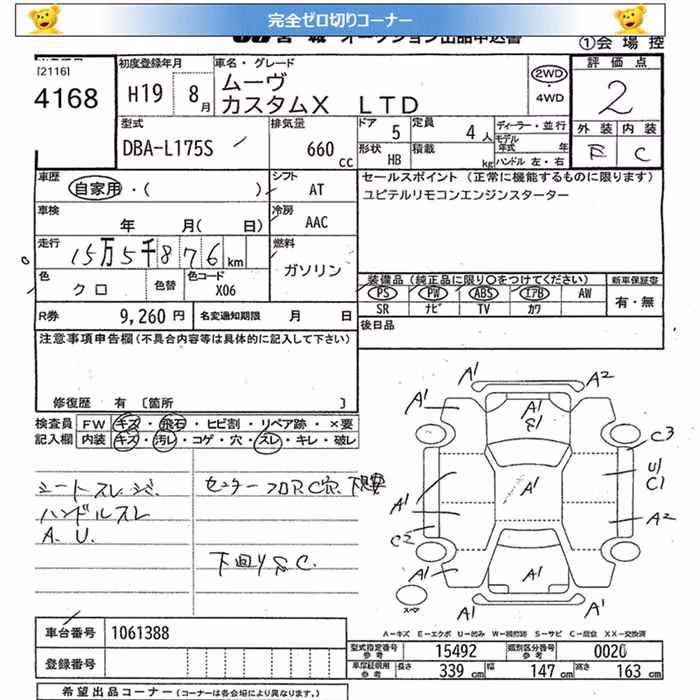 完全ゼロ切りコーナー
オークション出品申込書
①会 場 控
[2116]
4168
初度登録年月
H19 8月
車名・グレード
ムーヴ
カスタムX LTD
2WD
・
4WD
評 価 点
2
外 装 内 装
E C
型式
DBA-L175S
排気量
660 cc
ドア 5
定員 4人
形状 HB
積載 kg
ディーラー・並行
モデル年式 年
ハンドル 左・右
車歴
自家用・( )
シフト AT
セールスポイント (正常に機能するものに限ります)
ユピテルリモコンエンジンスターター
車検
年 月( 日)
冷房 AAC
走行
15万5千876 km
燃料
ガソリン
色
クロ
色替
色コード
X06
装備品 (純正品に限り〇をつけてください)
PS PW ABS エアB AW
SR ナビ TV カワ
新車保証書
有・無
R券 9,260 円
名変通知期限 月 日
後日品
注意事項申告欄 (不具合内容等は具体的に記入して下さい)
修復歴 有 〔箇所 〕
検査員 FW キズ・飛石・ヒビ割・リペア跡・×要
記入欄 内装 キズ・汚レ・コゲ・穴・スレ・キレ・破レ
シートスレ
ハンドルスレ
A. U.
センターフロアC穴
下回りS.C.
A1 A2
A1
A1
A1
C3
U1
C1
A1
A1
A2
C2
A1
A1
A1
A1
A1
スペア
A−キズ E−エクボ U−凹み W−補修跡 S−サビ C−腐食 XX−交換済
車台番号 1061388
型式指定番号 参考 15492 類別区分番号 参考 0020
登録番号
車庫証明用 参考 長さ 339 cm 幅 147 cm 高さ 163 cm
希望出品コーナー (コーナーは各会場により異なります。)